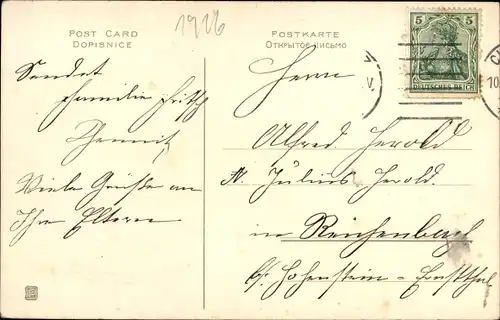 1916
POST CARD
DOPISNICE
POSTKARTE
ОТКРЫТОЕ ПИСЬМО
5 5
DEUTSCHES REICH
C
V
10
Sendet
Familie Fritsch
Chemnitz
Viele Grüße an
Ihre Eltern
Herrn
Alfred Herold
Julius Herold.
in Reichenbach
b/ Hohenstein-Ernstthal